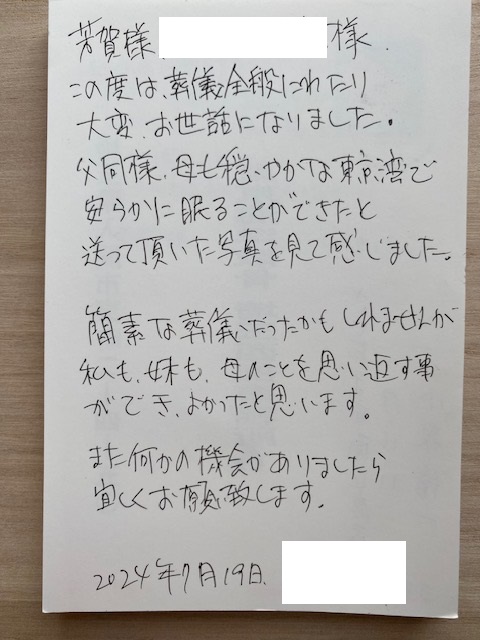 芳賀様 様
この度は、葬儀全般にわたり
大変、お世話になりました。
父同様、母も穏やかな東京湾で
安らかに眠ることができたと
送って頂いた写真を見て感じました。
簡素な葬儀だったかもしれませんが
私も、妹も、母のことを思い返す事
ができ、よかったと思います。
また何かの機会がありましたら
宜しくお願致します。
2024年7月19日